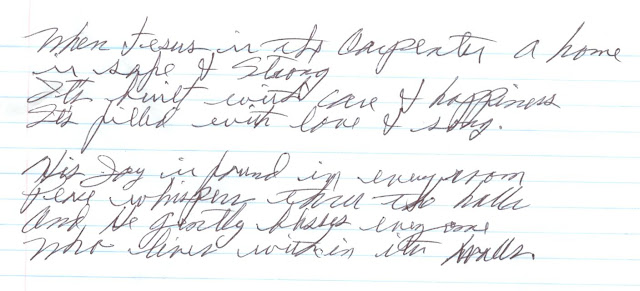 When Jesus is the Carpenter a home
is safe & Strong
Its built with care & happiness
Its filled with love & song.
His Joy is found in every room
Peace whispers thru the halls
And He gently blesses everyone
Who lives within its walls.